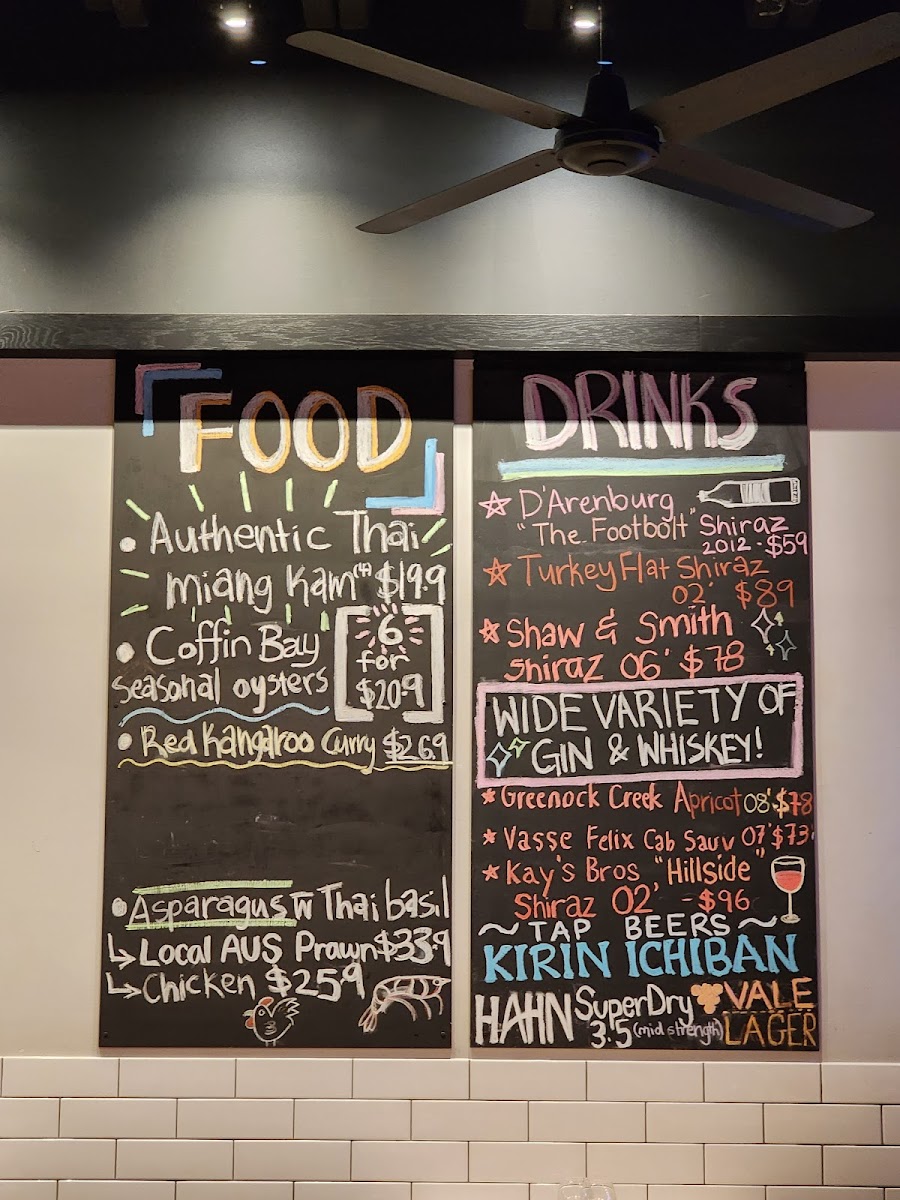 FOOD
Authentic Thai
miang Kam (4) $19.9
Coffin Bay
seasonal oysters
6
for
$20.9
Red Kangaroo Curry $26.9
Asparagus w Thai basil
Local AUS Prawn $33.9
Chicken $25.9
DRINKS
D'Arenburg
"The Footbolt" Shiraz
2012 - $59
Turkey Flat Shiraz
02' $89
Shaw & Smith
Shiraz 06' $78
WIDE VARIETY OF
GIN & WHISKEY!
Greenock Creek Apricot 08' $78
Vasse Felix Cab Sauv 07' $73
Kay's Bros "Hillside"
Shiraz 02' - $96
~ TAP BEERS ~
KIRIN ICHIBAN
HAHN SuperDry
3.5 (mid strength)
VALE
LAGER